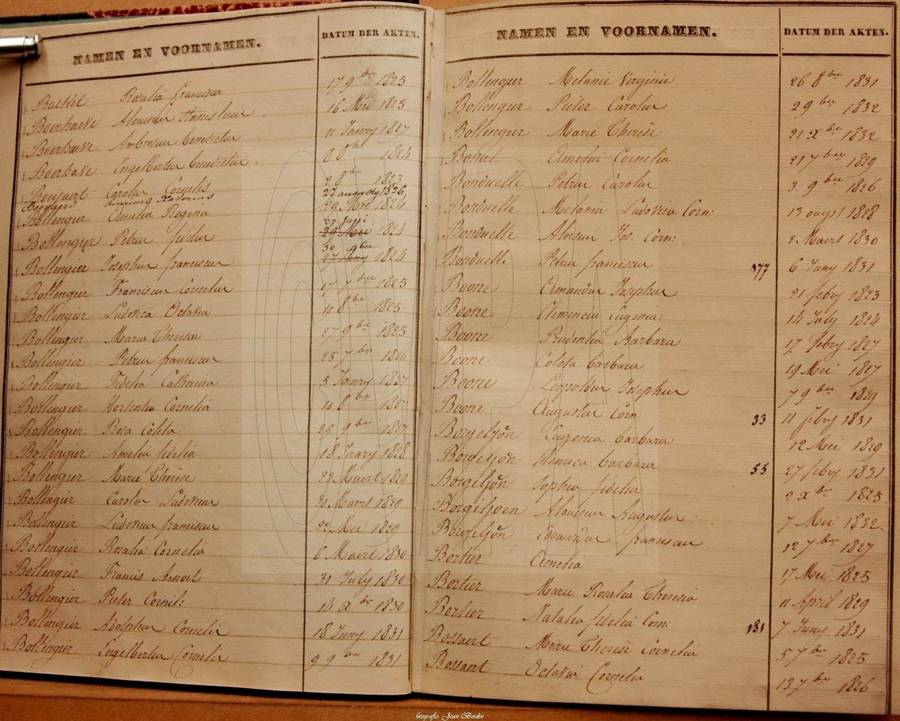 NAMEN EN VOORNAMEN. DATUM DER AKTEN.
Baekel Rosalia Francisca 17 9bre 1823
Beerhaeve Aloisius Stanislaus 16 Mei 1825
Beerbaeve Ambrosius Benedictus 11 Janry 1827
Beerbaeve Engelbertus Benedictus 8 8bre 1824
Beusaert Carolus Cornelis 2 8bre 1823
27 augusty 1826
Bollengier Amalia Regina 29 Mei 1824
29 Juni
Bollengier Petrus Fidelis 29 Mei 1824
30 9bre
Bollengier Josephus Franciscus 27 Juny 1824
Bollengier Franciscus Cornelius 17 7bre 1825
Bollengier Ludovica Octavia 10 8bre 1825
Bollengier Maria Theresia 27 9bre 1825
Bollengier Petrus Franciscus 25 7bre 1826
Bollengier Fidelia Catharina 5 Janry 1827
Bollengier Hortentia Cornelia 10 8bre 1827
Bollengier Rosa Coleta 29 9bre 1827
Bollengier Amelia Fidelia 18 Janry 1828
Bollengier Marie Thérèse 22 Maert 1829
Bollengier Carolus Ludovicus 31 Maert 1829
Bollengier Ludovicus Franciscus 22 Mei 1829
Bollengier Rosalia Cornelia 6 Maert 1830
Bollengier Francis Arnout 31 July 1830
Bollengier Pieter Cornel: 14 Xbre 1830
Bollengier Adolphus Cornelis 18 Juny 1831
Bollengier Engelbertus Cornelis 9 9bre 1831
NAMEN EN VOORNAMEN. DATUM DER AKTEN.
Bollengier Melanie Virginie 26 8bre 1831
Bollengier Pieter Carolus 29 9bre 1832
Bollengier Marie Thérèse 21 Xbre 1832
Amelia Cornelia 21 7bre 1829
Bonduelle Petrus Carolus 3 9bre 1826
Bonduelle Melania Ludovica Corn: 13 augst 1828
Bonduelle Aloisius Jos. Corn: 2 Maert 1830
Bonduelle Petrus Franciscus 177 6 Juny 1831
Boone Armandus Josephus 21 febry 1823
Boone Clemencia Eugenia 14 July 1824
Boone Prudentia Barbara 17 febry 1827
Boone Coleta Barbara 19 Mei 1827
Boone Leopoldus Josephus 7 9bre 1829
Boone Augustus Corn: 33 11 febry 1831
Borgeljôn Eugenia Barbara 12 Mei 1829
Borgeljôn Monica Barbara 55 27 febry 1831
Borgeljôn Sophia Fidelia 2 Xbre 1825
Borgiljoen Aloisius Augustus 7 Mei 1832
Borgeljôn Eduardus Franciscus 12 7bre 1827
Bortier Amelia 17 Mei 1825
Bortier Marie Rosalia Theresia 11 April 1829
Bortier Natalia Fidelia Corn: 181 7 Juny 1831
Bossaert Marie Therese Cornelia 5 7bre 1825
Bossaert Octavia Cornelia 13 7bre 1826
fotografie Joan Boudin